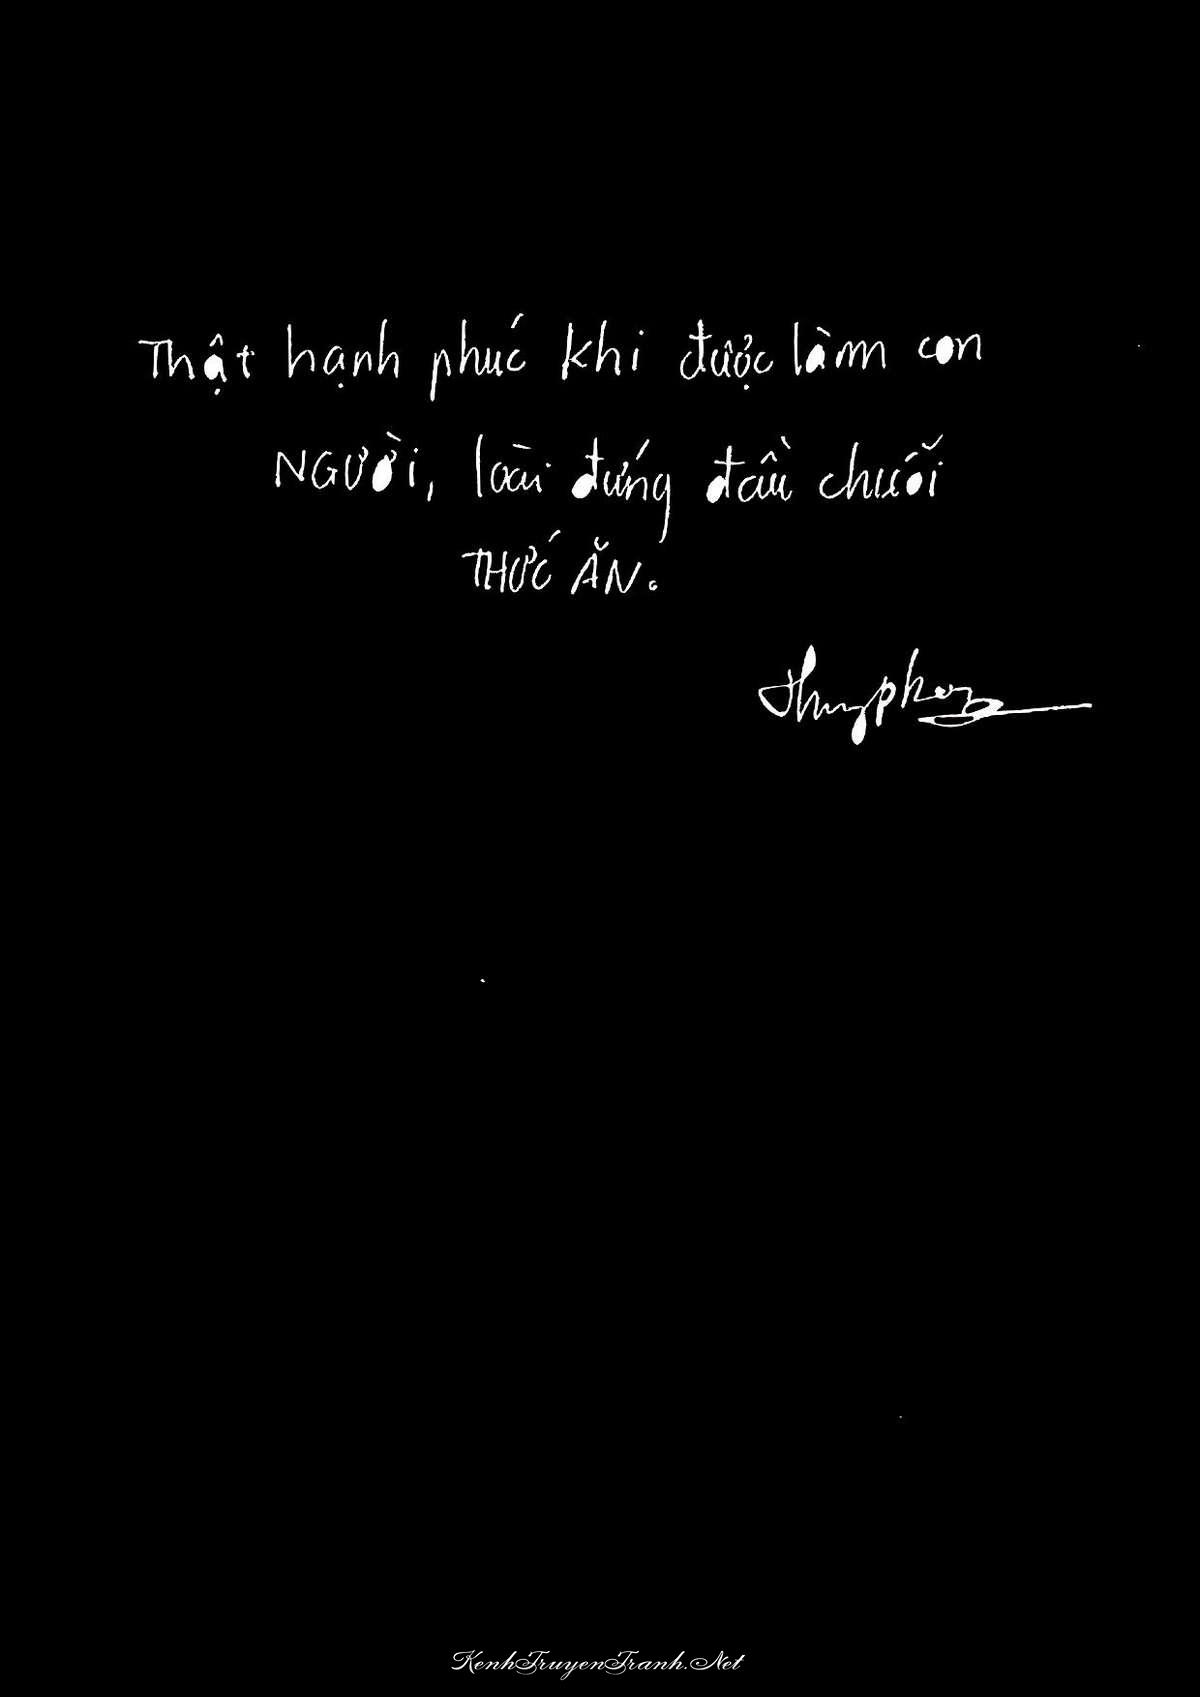 Thật hạnh phúc khi được làm con
NGƯỜI, loài đứng đầu chuỗi
THỨC ĂN.
KenhTruyenTranh.Net